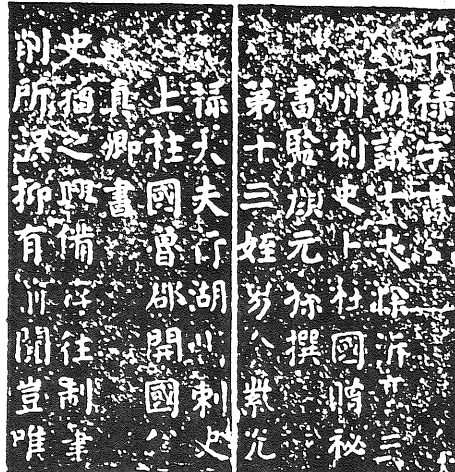 干祿字書
朝議大夫滁沂三
州刺史上柱國贈秘
書監顏元孫撰
第十三姪男金紫光
祿大夫行湖州刺史
上柱國魯郡開國公
真卿書
史籀之興備存往制筆
削所誤抑有前聞豈唯